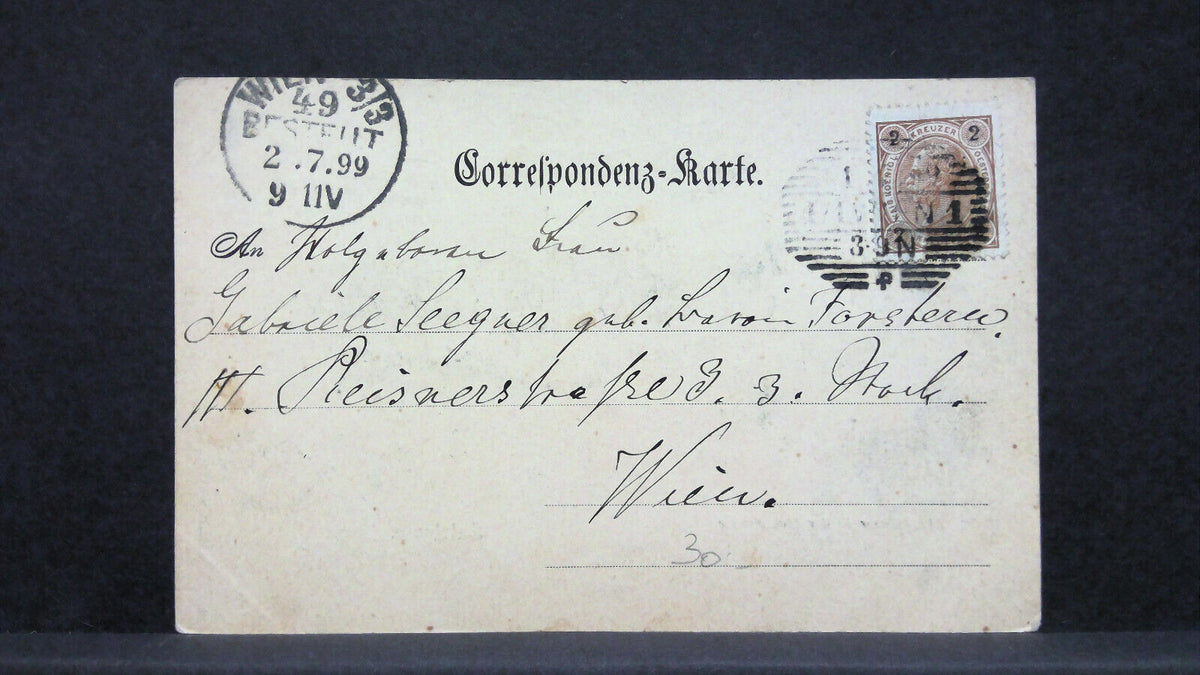 WIEN 3/3
49
BESTELLT
2.7.99
9 IIV
Correspondenz-Karte.
2 KREUZER 2
1
WIEN 1
8·9N
An Hochgeboren Frau
Gabriele Seegner geb. Baronin Forstern
III. Reisnerstraße 3. 3. Stock.
Wien.
30